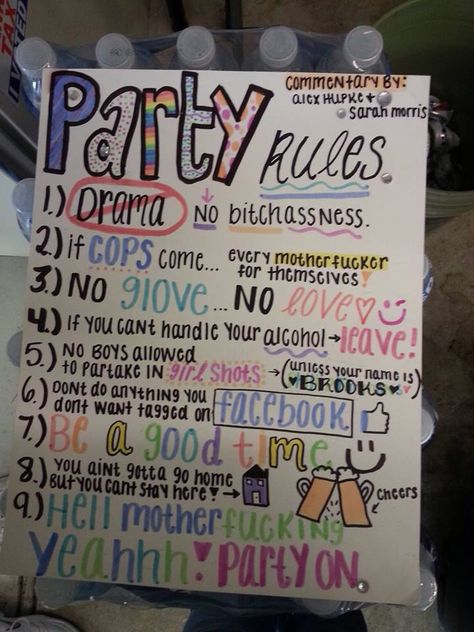 Party Rules
COMMENTARY BY:
alex Hupke +
sarah morris
1.) Drama NO bitchassness.
2.) if COPS come... every motherfucker
for themselves!
3.) NO glove... NO love
4.) If you cant handle your alcohol → leave!
5.) NO BOYS allowed
to partake in girl shots → (unless your name is)
BROOKS
6.) DONT do anything you
dont want tagged on facebook
7.) Be a good time
8.) you aint gotta go home
But you cant stay here! →
cheers
9.) Hell motherfucking
yeahhh! Party ON.